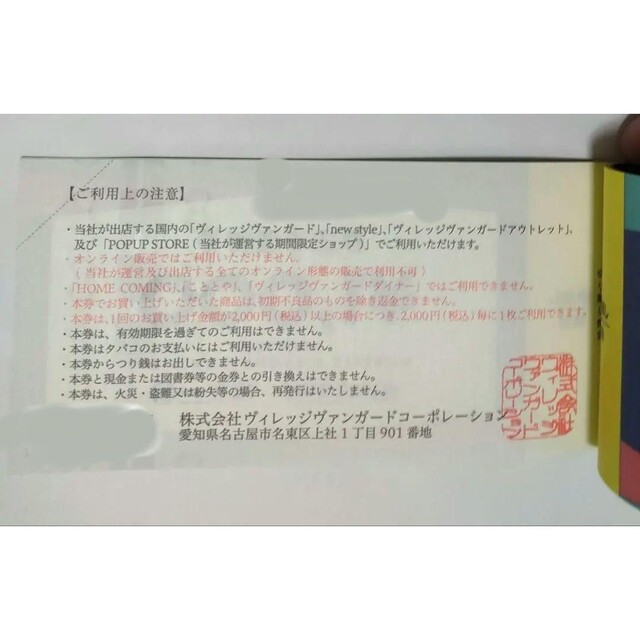 【ご利用上の注意】
・当社が出店する国内の「ヴィレッジヴァンガード」、「new style」、「ヴィレッジヴァンガードアウトレット」、
及び「POPUP STORE（当社が運営する期間限定ショップ）」でご利用いただけます。
・オンライン販売ではご利用いただけません。
（当社が運営及び出店する全てのオンライン形態の販売で利用不可）
・「HOME COMING」、「こととや」、「ヴィレッジヴァンガードダイナー」ではご利用できません。
・本券でお買い上げいただいた商品は、初期不良品のものを除き返金できません。
・本券は、1回のお買い上げ金額が2,000円（税込）以上の場合につき、2,000円（税込）毎に1枚ご利用できます。
・本券は、有効期限を過ぎてのご利用はできません。
・本券はタバコのお支払いにはご利用いただけません。
・本券からつり銭はお出しできません。
・本券と現金または図書券等の金券との引き換えはできません。
・本券は、火災・盗難又は紛失等の場合、再発行はいたしません。
株式会社ヴィレッジヴァンガードコーポレーション
愛知県名古屋市名東区上社1丁目901番地
株式会社
ヴィレッジ
ヴァンガード
コーポレーション